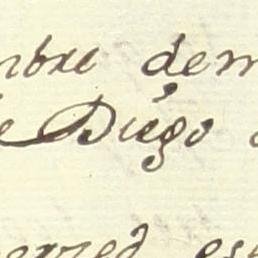 mbre dem
e Diego
erzed ese